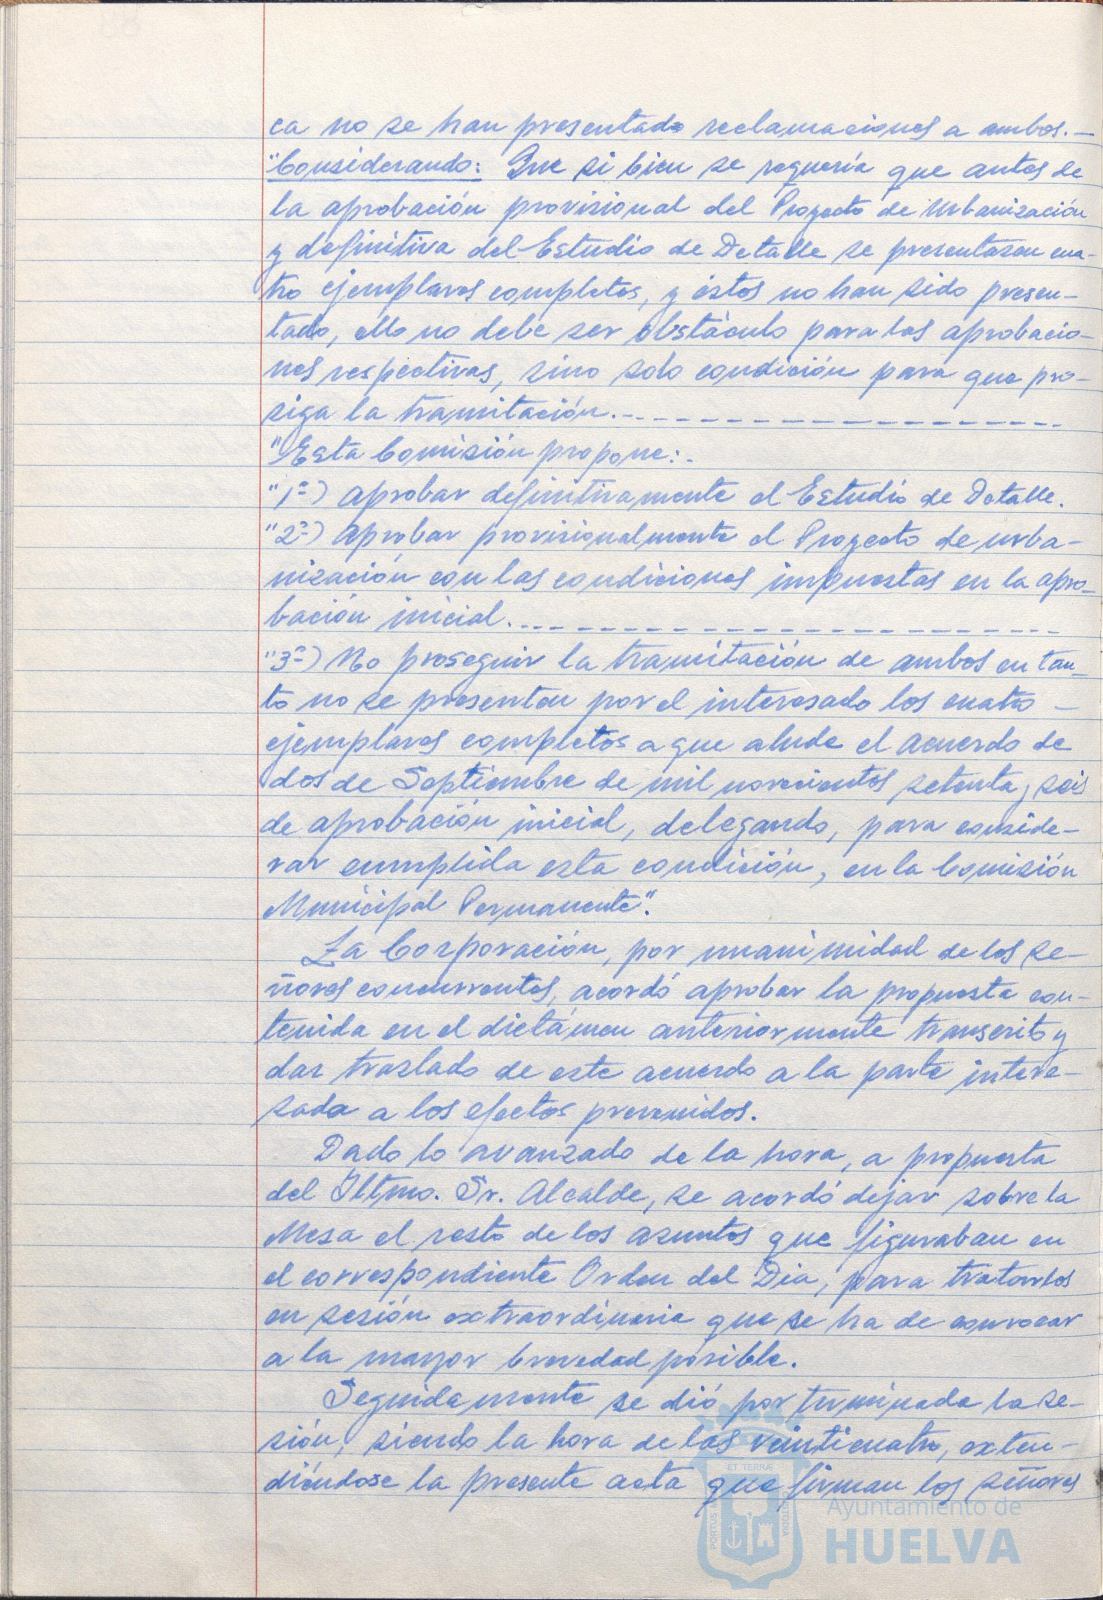 ca no se han presentado reclamaciones a ambos.—
"Considerando: Que si bien se requería que antes de
la aprobación provisional del Proyecto de Urbanización
y definitiva del Estudio de Detalle se presentaran cua-
tro ejemplares completos, y éstos no han sido presen-
tado, ello no debe ser obstáculo para las aprobacio-
nes respectivas, sino solo condición para que pro-
siga la tramitación.
"Esta Comisión propone:.
"1º) Aprobar definitivamente el Estudio de Detalle.
"2º) Aprobar provisionalmente el Proyecto de urba-
nización con las condiciones impuestas en la apro-
bación inicial.
"3º) No proseguir la tramitación de ambos en tan-
to no se presenten por el interesado los cuatro —
ejemplares completos a que alude el acuerdo de
dos de Septiembre de mil novecientos setenta y seis
de aprobación inicial, delegando, para conside-
rar cumplida esta condición, en la Comisión
Municipal Permanente".
La Corporación, por unanimidad de los se-
ñores concurrentes, acordó aprobar la propuesta con-
tenida en el dictámen anteriormente transcrito y
dar traslado de este acuerdo a la parte intere-
sada a los efectos prevenidos.
Dado lo avanzado de la hora, a propuesta
del Iltmo. Sr. Alcalde, se acordó dejar sobre la
Mesa el resto de los asuntos que figuraban en
el correspondiente Orden del Dia, para tratarlos
en sesión extraordinaria que se ha de convocar
a la mayor brevedad posible.
Seguidamente se dió por terminada la se-
sión, siendo la hora de las veinticuatro, exten-
diéndose la presente acta que firman los señores
ET TERRÆ
PORTUS
CUSTODIA
Ayuntamiento de
HUELVA